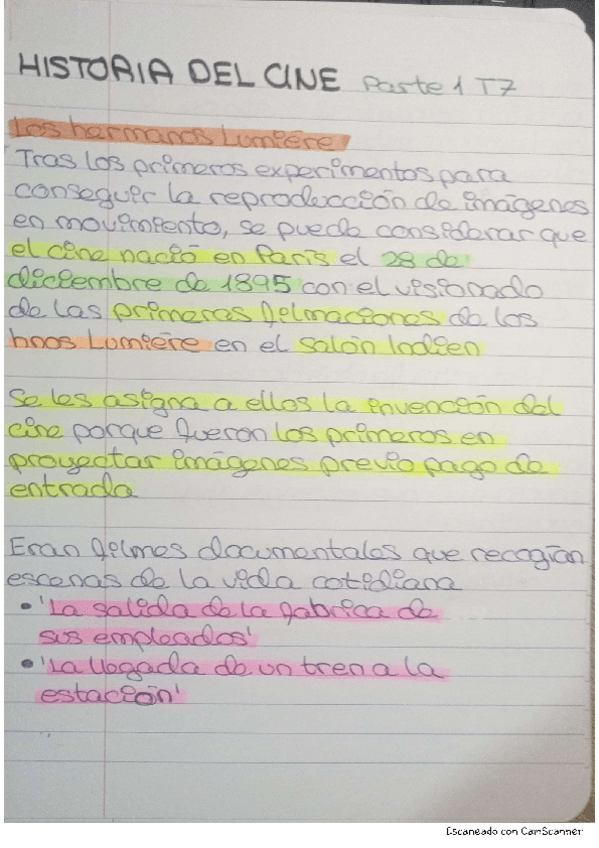 HISTORIA DEL CINE Parte 1 T7
Los hermanos Lumière
Tras los primeros experimentos para
conseguir la reproducción de imágenes
en movimiento, se puede considerar que
el cine nació en París el 28 de
diciembre de 1895 con el visionado
de las primeras filmaciones de los
hnos Lumière en el salón Indien
Se les asigna a ellos la invención del
cine porque fueron los primeros en
proyectar imágenes previo pago de
entrada
Eran filmes documentales que recogían
escenas de la vida cotidiana
• 'La salida de la fabrica de
sus empleados'
• 'La llegada de un tren a la
estación'
Escaneado con CamScanner